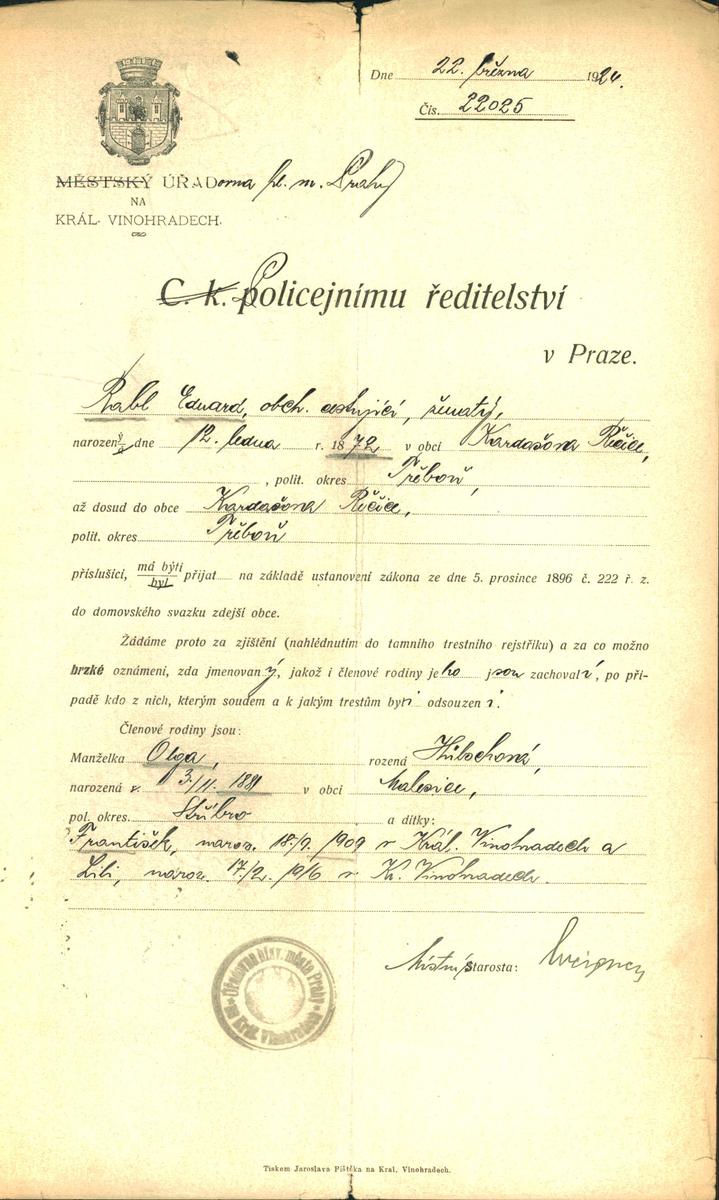 Dne 22. března 1924.
Čís. 22025
MĚSTSKÝ ÚŘADovna hl. m. Prahy
NA
KRÁL. VINOHRADECH.
C. k. Policejnímu ředitelství
v Praze.
Rabl Eduard, obch. cestující, ženatý,
narozený/á dne 12. ledna r. 1872 v obci Kardašova Řečice,
, polit. okres Třeboň,
až dosud do obce Kardašova Řečice,
polit. okres Třeboň
příslušící, má býti/byl přijat na základě ustanovení zákona ze dne 5. prosince 1896 č. 222 ř. z.
do domovského svazku zdejší obce.
Žádáme proto za zjištění (nahlédnutím do tamního trestního rejstříku) a za co možno
brzké oznámení, zda jmenovaný, jakož i členové rodiny jeho jsou zachovalí, po pří-
padě kdo z nich, kterým soudem a k jakým trestům byli odsouzeni.
Členové rodiny jsou:
Manželka Olga, rozená
narozená v. 3./11. 1881 v obci Malesice,
pol. okres. Stříbro a dítky:
František, naroz. 18./9. 1909 v Král. Vinohradech a
Lili, naroz. 17./2. 1916 v Kr. Vinohradech.
Místní starosta:
Úřadovna hlav. města Prahy
na Král. Vinohradech
Tiskem Jaroslava Pištěka na Kral. Vinohradech.